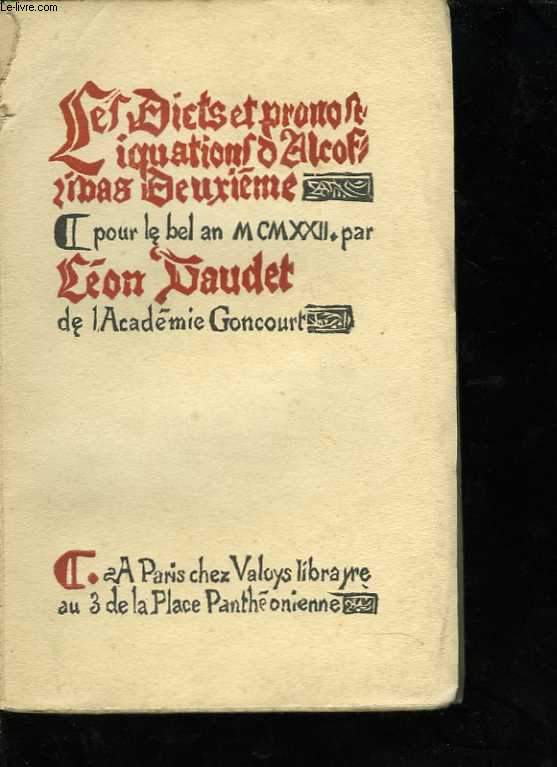 Le-livre.com
Les Dicts et pronost-
iquations d'Alcof-
ribas Deuxiéme
pour le bel an MCMXXII. par
Léon Daudet
de l'Académie Goncourt
A Paris chez Valoys librayre
au 3 de la Place Panthéonienne